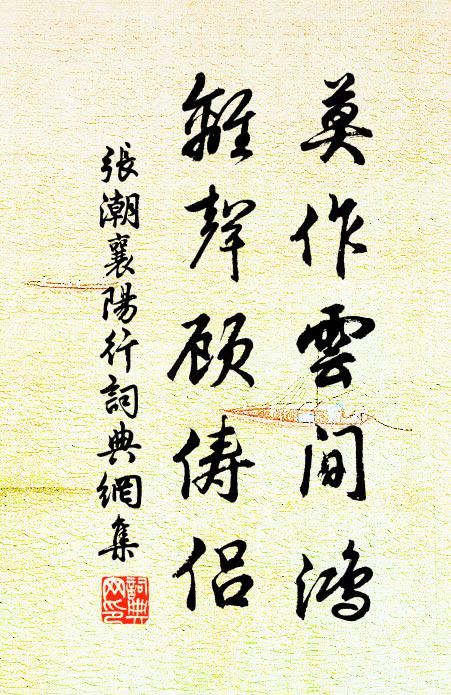 莫作雲間鴻
離聲顧儔侶
張潮襄陽行詞典網集
詞典网印